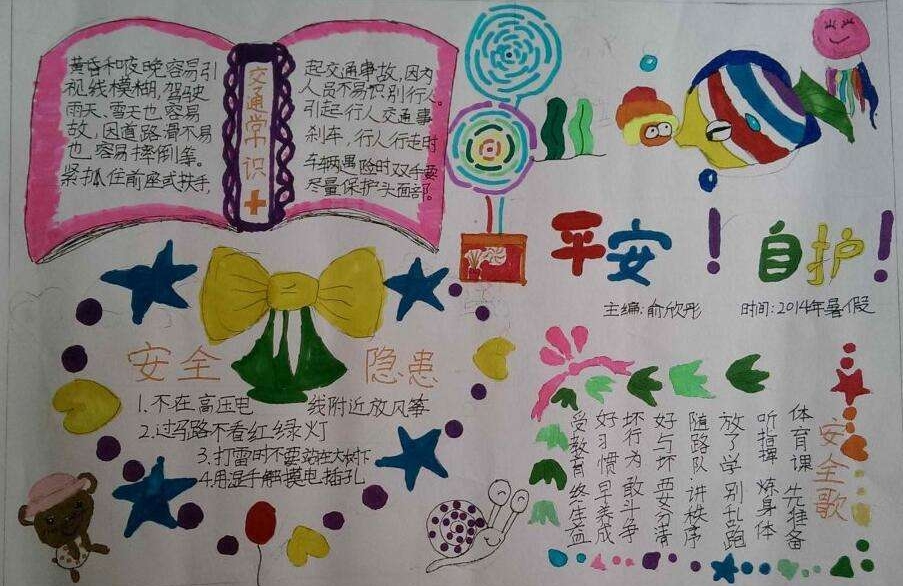 黄昏和夜晚容易引
视线模糊,驾驶
雨天、雪天也容易
故,因道路滑不易
也容易摔倒等。
紧抓住前座或扶手,
交通常识
起交通事故,因为
人员不易识别行人。
引起行人交通事
刹车,行人行走时
车辆遇险时双手要
尽量保护头面部。
平安!自护!
主编:俞欣彤 时间:2014年暑假
安全隐患
1.不在高压电线附近放风筝
2.过马路不看红绿灯
3.打雷时不要站在大树下
4.用湿手触摸电插孔
安全歌
体育课 先准备
听指挥 炼身体
放了学 别乱跑
随路队 讲秩序
好与坏 要分清
坏行为 敢斗争
好习惯 早养成
受教育 终生益